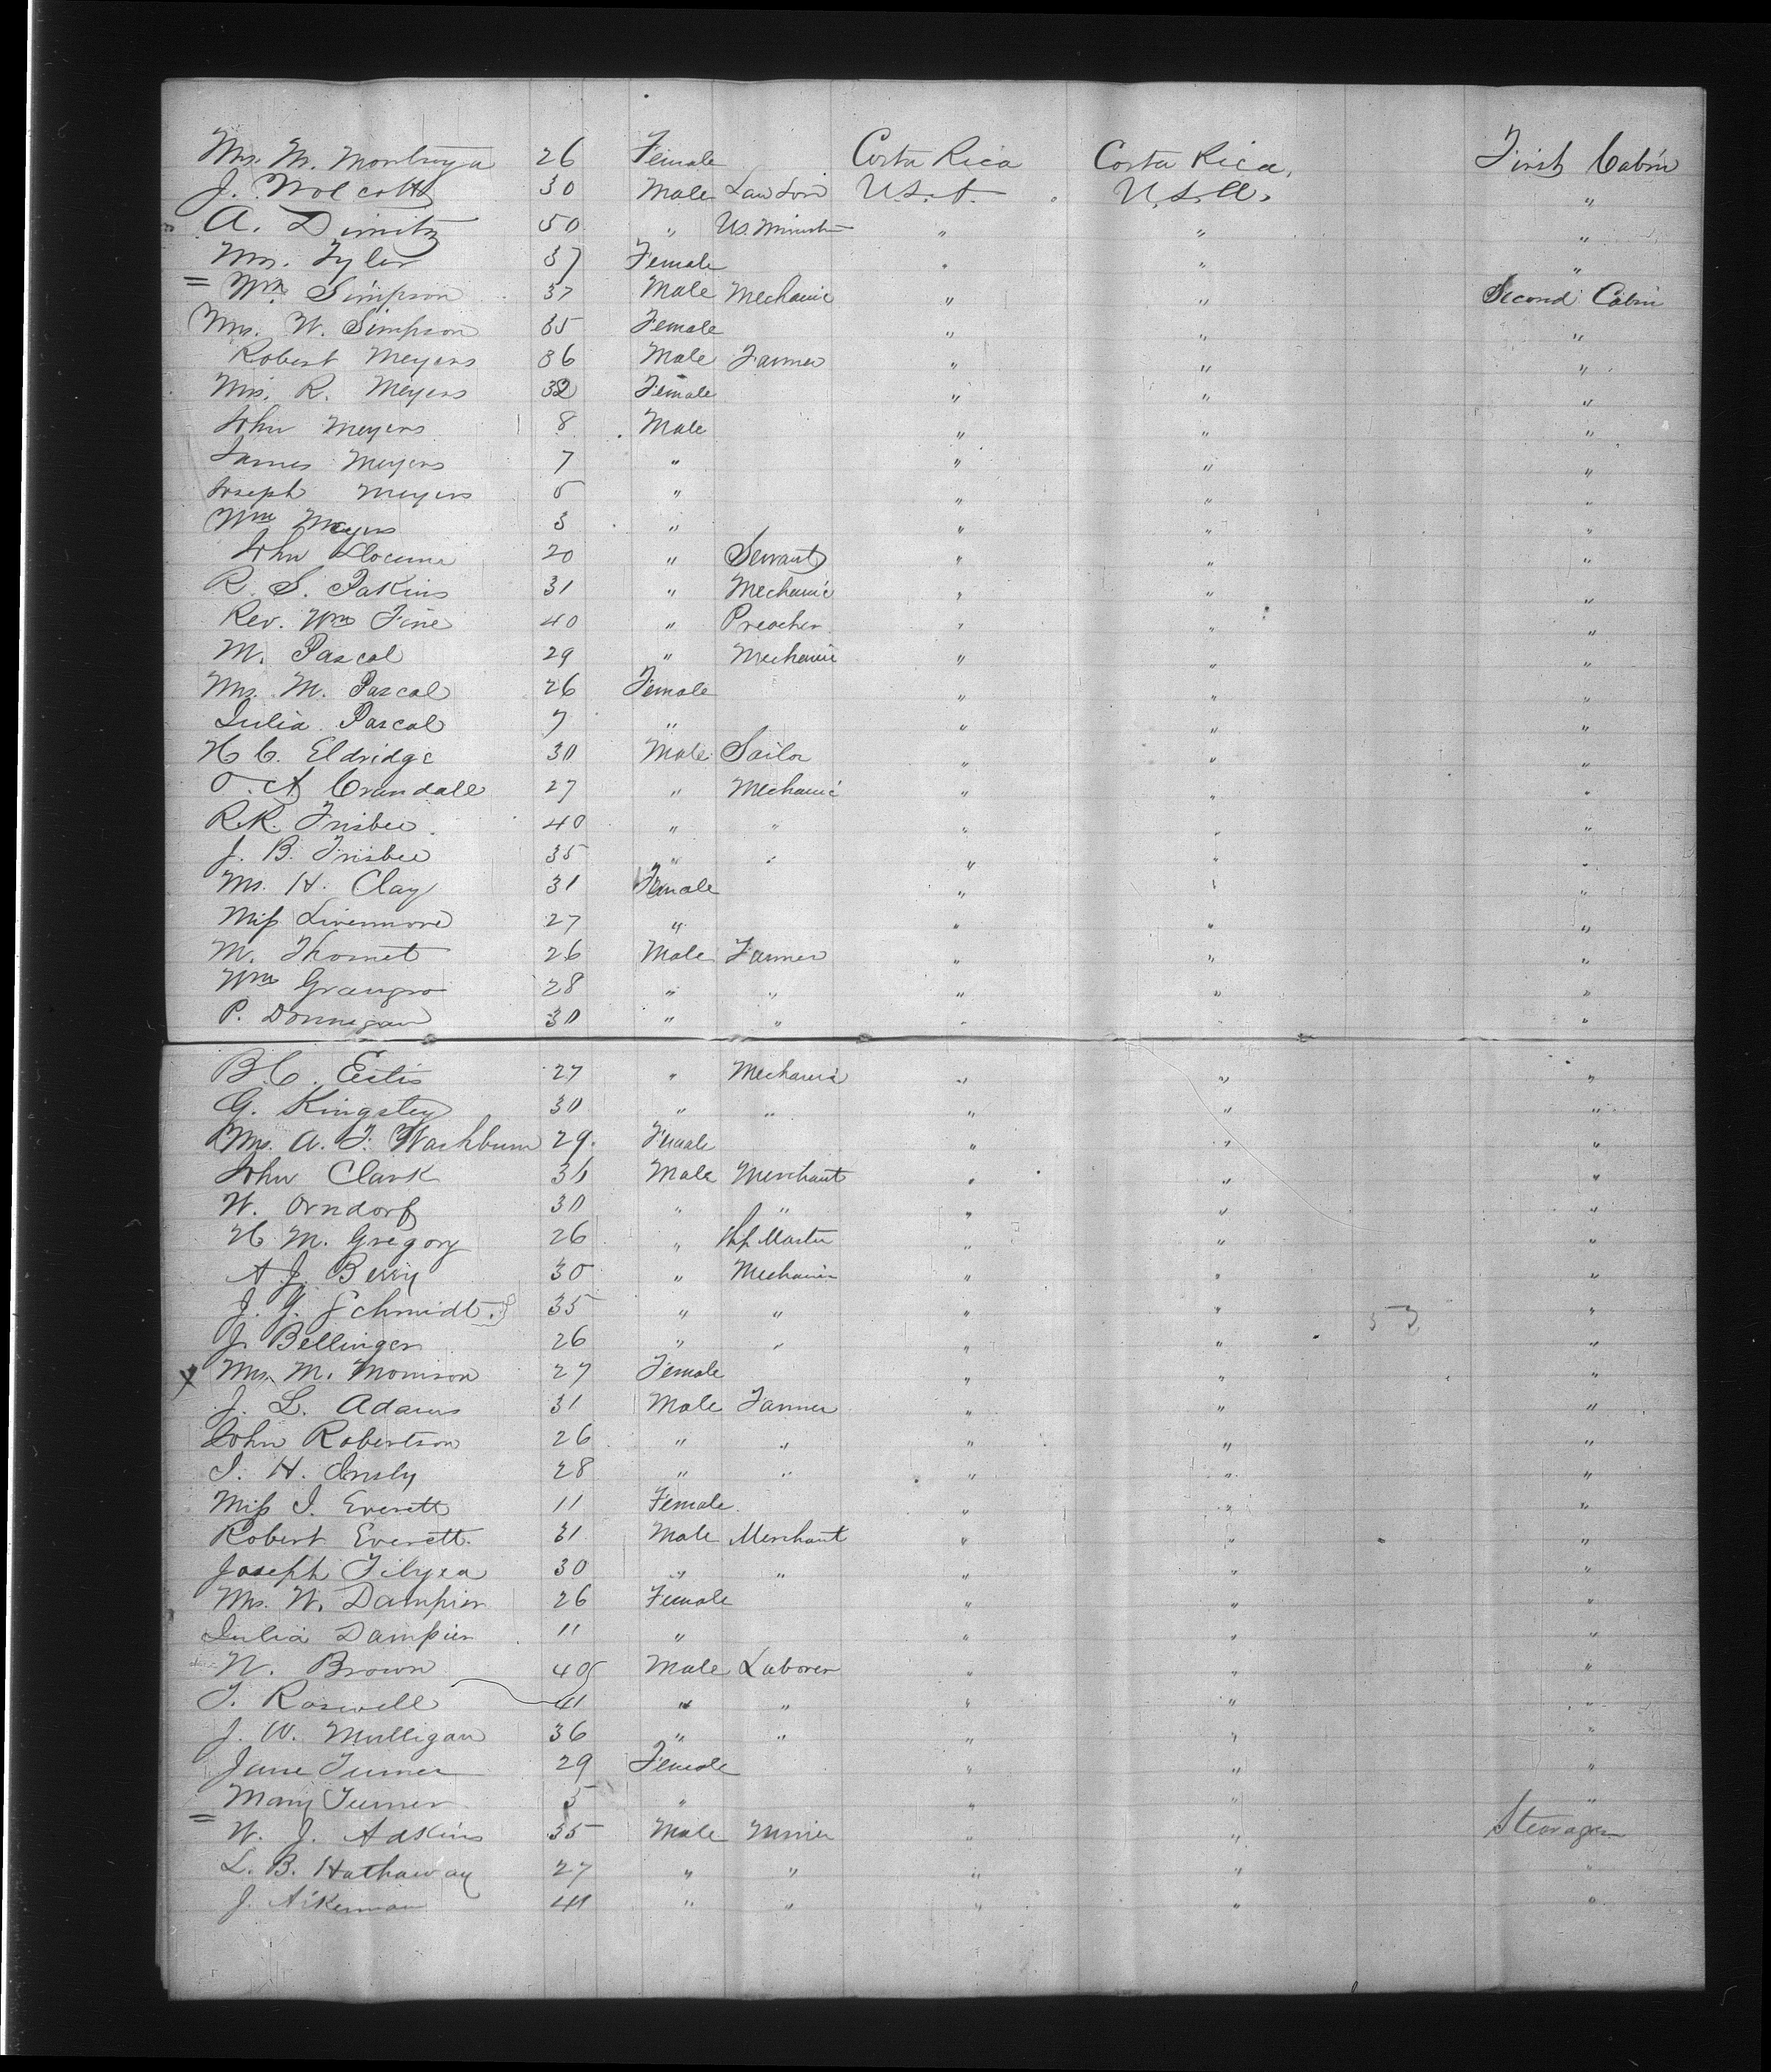 Mrs. M. Montuya 26 Female Costa Rica Costa Rica, First Cabin
J. Wolcott 30 Male U.S.A. U.S.A. "
A. Dimitz 50 " US. Minister " " "
Mrs. Tyler 37 Female " " "
= Wm Simpson 37 Male Mechanic " " Second Cabin
Mrs. W. Simpson 35 Female " " "
Robert Meyers 36 Male Farmer " " "
Mrs. R. Meyers 32 Female " " "
John Meyers 8 Male " " "
James Meyers 7 " " " "
Joseph Meyers 5 " " " "
Wm Meyers 3 " " " "
John Slocum 20 " Servant " " "
R. S. Pakins 31 " Mechanic " " "
Rev. Wm Fine 40 " Preacher " " "
M. Pascal 29 " Mechanic " " "
Mrs. M. Pascal 26 Female " " "
Julia Pascal 7 " " " "
H C. Eldridge 30 Male Sailor " " "
O. A Crandall 27 " Mechanic " " "
R.R. Frisbee 40 " " " " "
J. B. Frisbee 35 " " " " "
Ms. H. Clay 31 Female " " "
Miss Livermore 27 " " " "
M. Thomet 26 Male Farmer " " "
Wm 28 " " " " "
P. Donnegan 30 " " " " "
B.C. Estis 27 " Mechanic " " "
G. Kingsley 30 " " " " "
Mrs. A. F. Washburn 29. Female " " "
John Clark 36 Male Merchant " " "
W. Orndorf 30 " " " " "
H M. Gregory 26 " Master " " "
A J. Berry 30 " Mechanic " " "
J. G. Schmidt. 35 " " " " "
J. Bellinger 26 " " " " "
x Mrs. M. Morrison 27 Female " " "
J. L. Adams 31 Male Farmer " " "
John Robertson 26 " " " " "
I. H. Insly 28 " " " " "
Miss I. Everett 11 Female " " "
Robert Everett. 31 Male Merchant " " "
Joseph Tilyea 30 " " " " "
Mrs. W. Dampier 26 Female " " "
Julia Dampier 11 " " " "
N. Brown 40 Male Laborer " " "
T. Roswell 41 " " " " "
J. W. Mulligan 36 " " " " "
Jane Turner 29 Female " " "
Mary Turner 5 " " " "
= W. J. Adkins 35 Male Miner " " Stearage
L. B. Hathaway 27 " " " " "
J. Aikerman 41 " " " " "